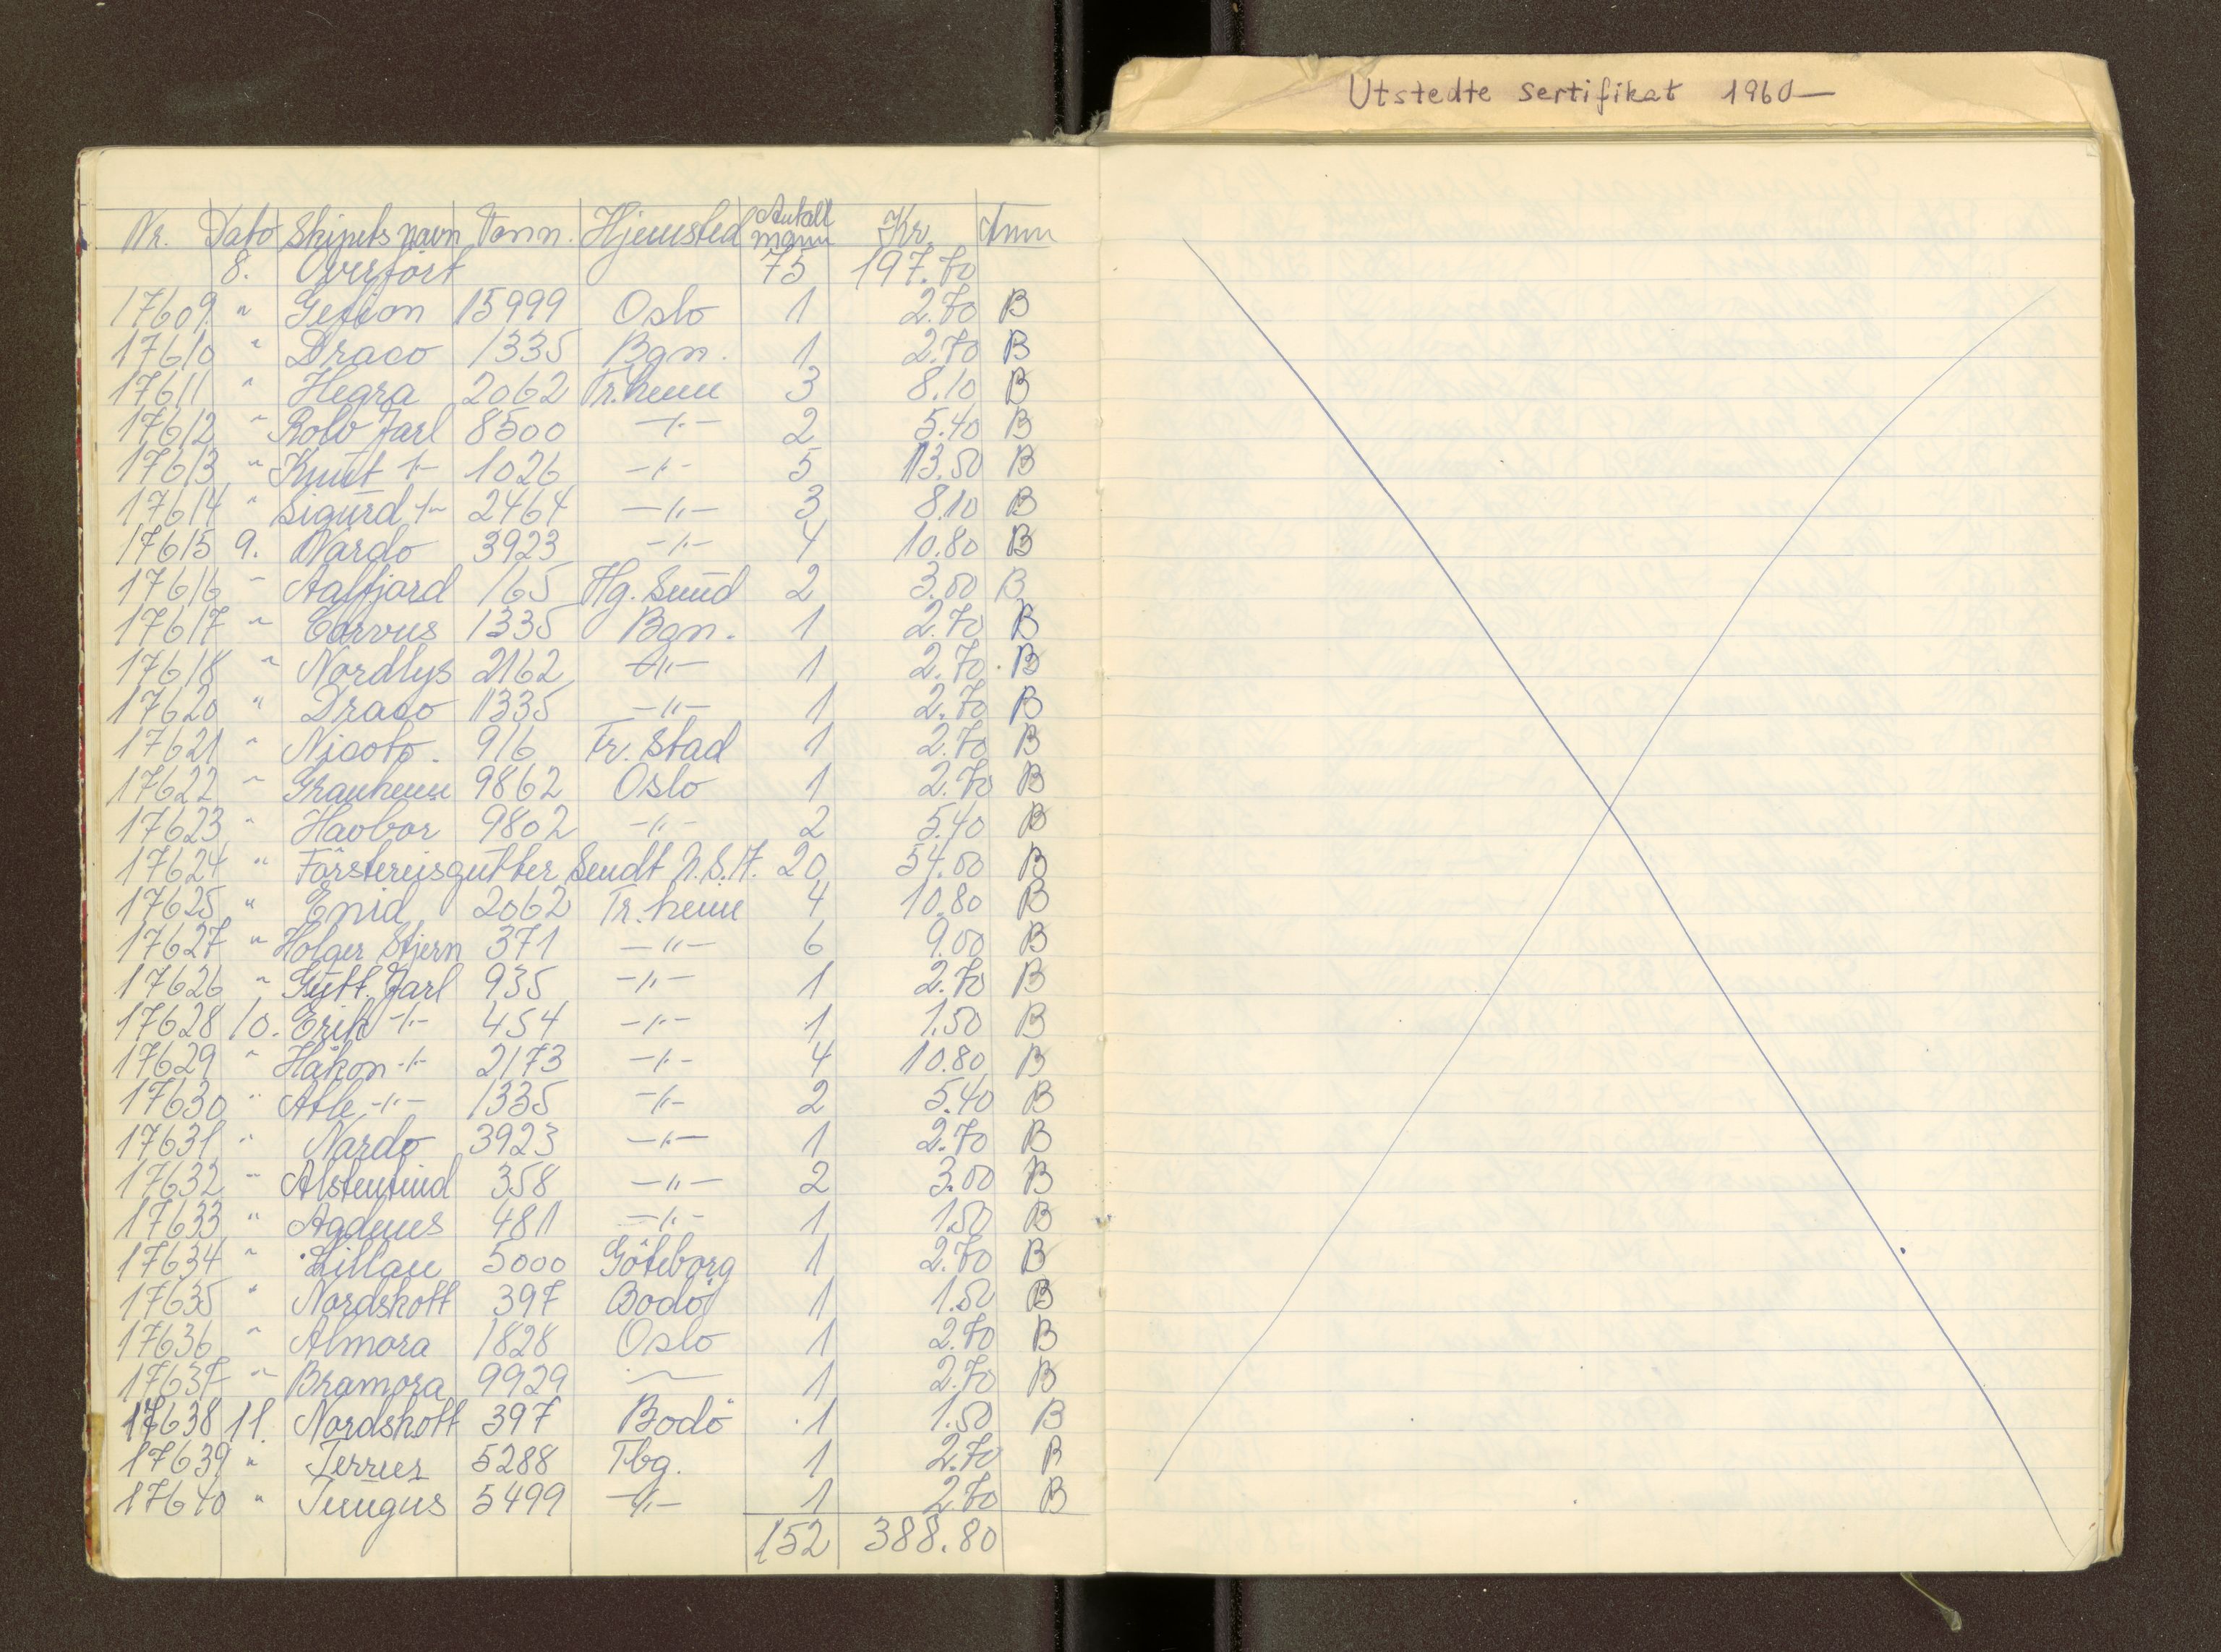 Utstedte Sertifikat 1960—
Nr. Dato Skipets navn Tonn. Hjemsted Antall mann Kr. Anm
8. Overført 75 197.70
17609 " Gefion 15999 Oslo 1 2.70 B
17610 " Draco 1335 Bgn. 1 2.70 B
17611 " Hegra 2062 Tr.heim 3 8.10 B
17612 " Rolv Jarl 8500 -"- 2 5.40 B
17613 " Knut -"- 1026 -"- 5 13.50 B
17614 " Sigurd -"- 2464 -"- 3 8.10 B
17615 9. Nardo 3923 -"- 4 10.80 B
17616 " Aalfjord 165 Hg.Sund 2 3.00 B
17617 " Corvus 1335 Bgn. 1 2.70 B
17618 " Nordlys 2162 -"- 1 2.70 B
17620 " Draco 1335 -"- 1 2.70 B
17621 " Nicoto. 916 Fr.Stad 1 2.70 B
17622 " Granheim 9862 Oslo 1 2.70 B
17623 " Havbor 9802 -"- 2 5.40 B
17624 " Førstereisgutter Sendt N.S.A. 20 54.00 B
17625 " Enid 2062 Tr.heim 4 10.80 B
17627 " Holger Stjern 371 -"- 6 9.00 B
17626 " Gutt. Jarl 935 -"- 1 2.70 B
17628 10. Erik -"- 454 -"- 1 1.50 B
17629 " Håkon -"- 2173 -"- 4 10.80 B
17630 " Atle -"- 1335 -"- 2 5.40 B
17631 " Nardo 3923 -"- 1 2.70 B
17632 " Alstentind 358 -"- 2 3.00 B
17633 " Agdenes 481 -"- 1 1.50 B
17634 " Killan 5000 Göteborg 1 2.70 B
17635 " Nordskott 397 Bodö 1 1.50 B
17636 " Almora 1828 Oslo 1 2.70 B
17637 " Bramora 9929 — 1 2.70 B
17638 11. Nordskott 397 Bodö 1 1.50 B
17639 " Terrier 5288 Tbg. 1 2.70 B
17640 " Tungus 5499 -"- 1 2.70 B
152 388.80